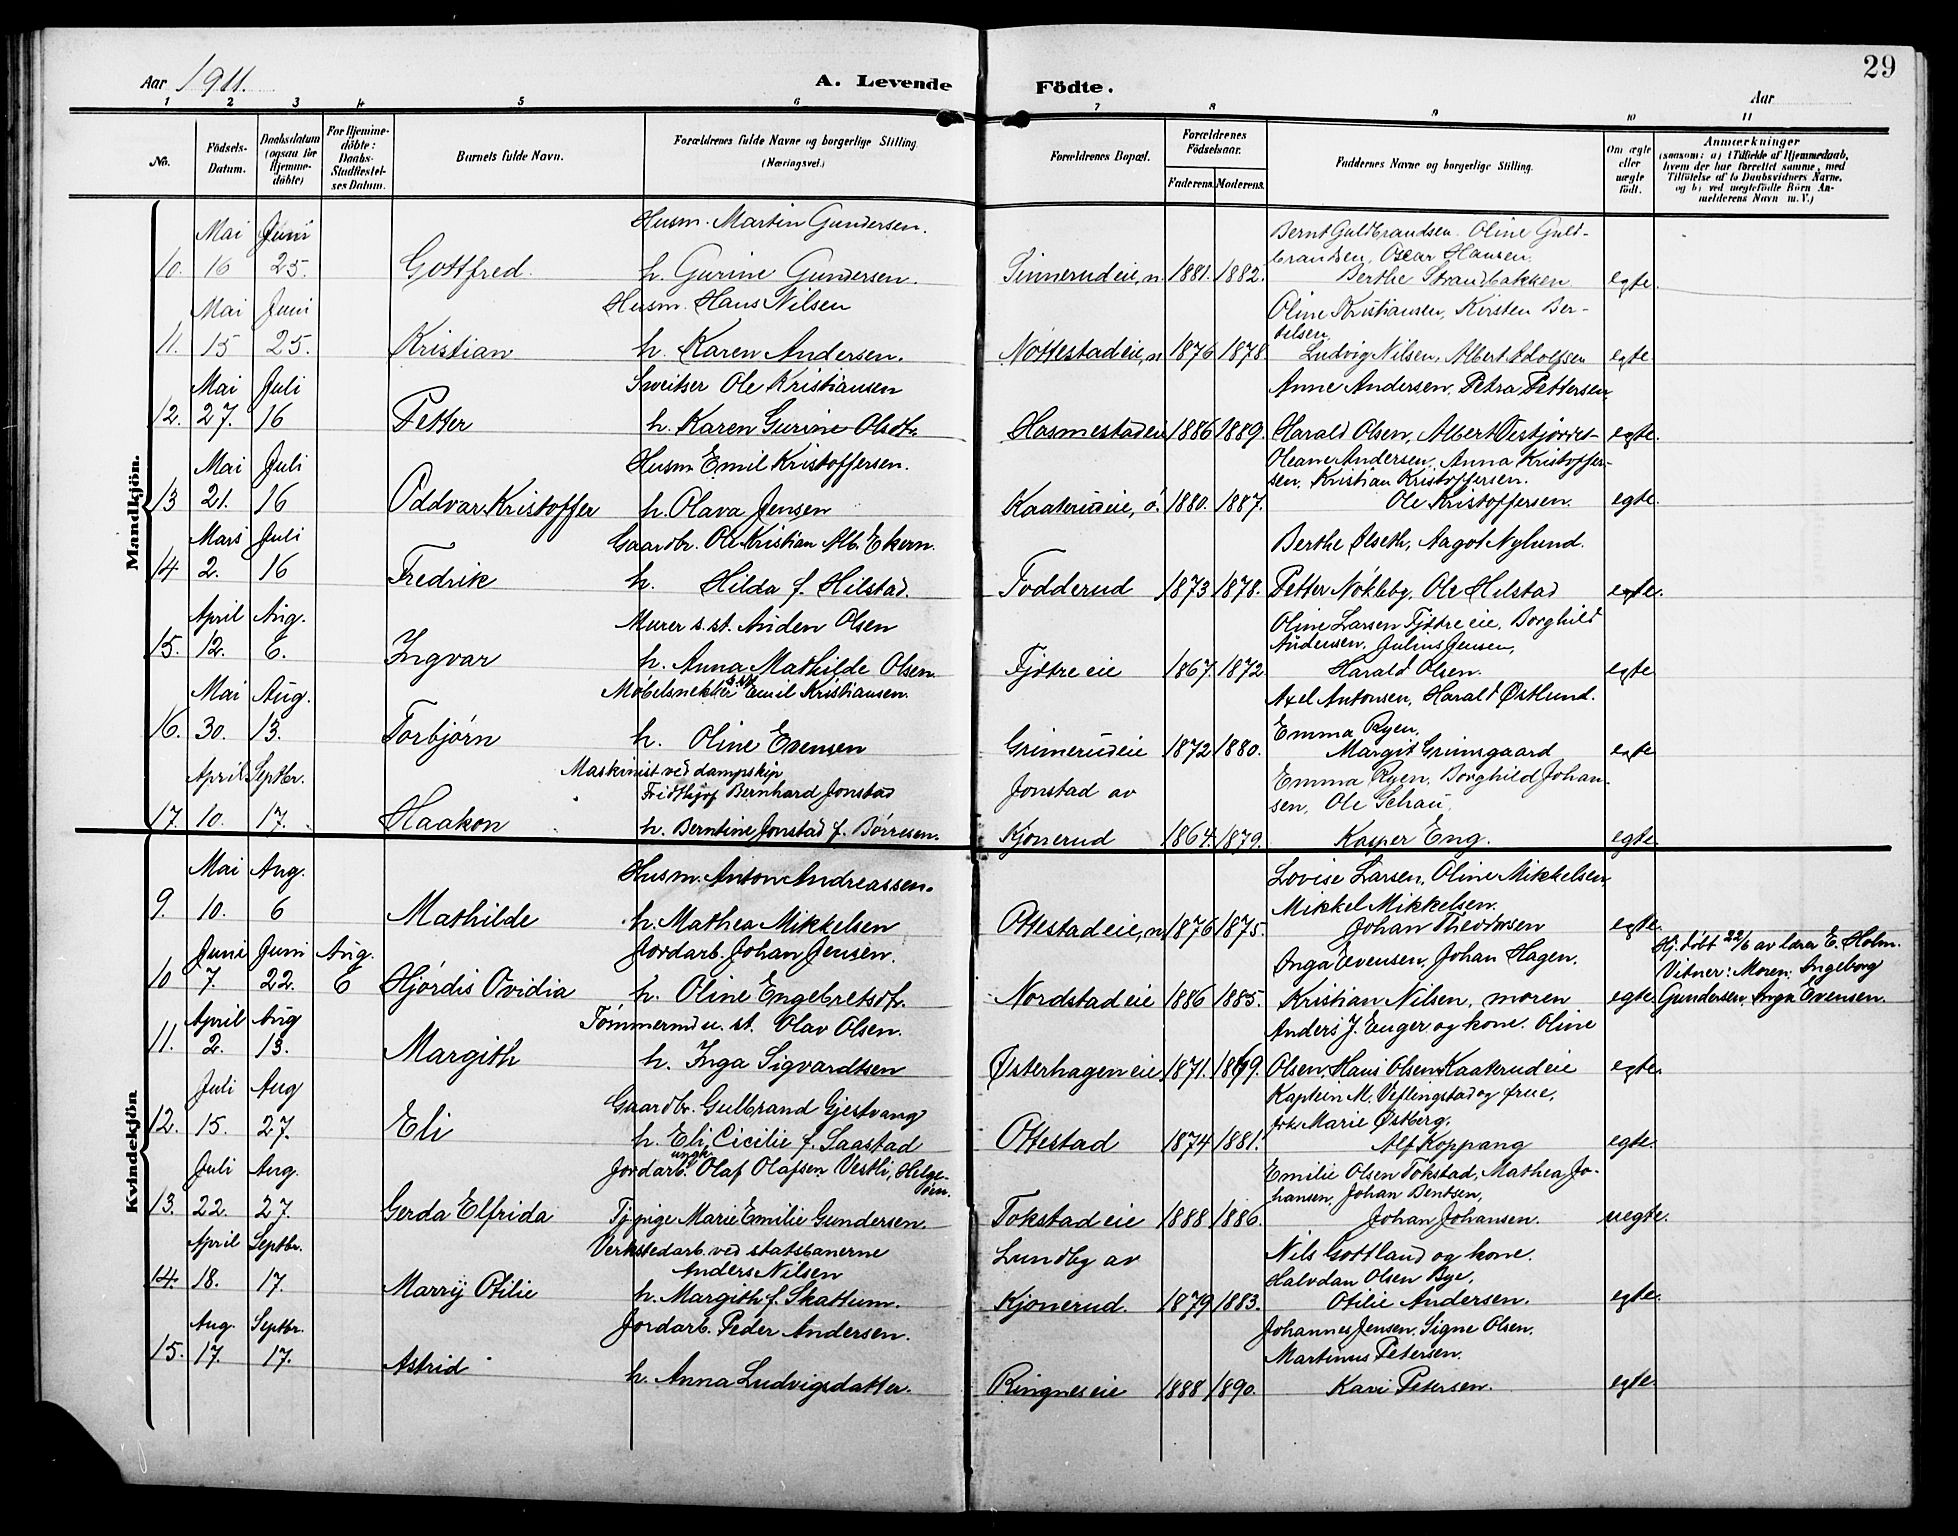 29
Aar 1911.
A. Levende Födte.
Aar
1 2 3 4 5 6 7 8 9 10 11
No.
Födsels-Datum.
Daabsdatum (ogsaa for Hjemme-döbte)
For Hjemme-döbte: Daabs-Stadfæstel-ses Datum.
Barnets fulde Navn.
Forældrenes fulde Navne og borgerlige Stilling (Næringsvei.)
Forældrenes Bopæl.
Forældrenes Födselsaar.
Faderens. Moderens.
Faddernes Navne og borgerlige Stilling.
Om ægte eller uægte födt.
Anmærkninger (saasom: a) i Tilfælde af Hjemmedaab, hvem der har forrettet samme, med Tilföielse af to Daabsvidners Navne, og b) ved uægtefödte Börn An-melderens Navn m. V.)
Mandkjön.
Mai Juni Husm. Martin Gundersen. Bernt Guldbrandsen. Oline Guld-
brandsen, Oscar Hansen.
10. 16 25. Gottfred. h. Gurine Gundersen. Sinnerudeie, n. 1881. 1882. Berthe Strandbakken egte.
Mai Juni Husm. Hans Nilsen Oline Kristiansen, Kirsten Ber-
telsen,
11. 15 25. Kristian h. Karen Andersen. Nøttestadeie, n 1876 1878. Ludvig Nilsen, Albert Adolfsen egte.
Mai Juli Sveitser Ole Kristiansen Anne Andersen, Petra Pettersen,
12. 27. 16 Petter h. Karen Gurine Olsdtr. Hosmestadeie 1886 1889. Harald Olsen, Albert Vestjordet egte.
Mai Juli Husm Emil Kristoffersen. Oleane Andersen, Anna Kristoffer-
sen, Kristian Kristoffersen.
13 21. 16 Oddvar Kristoffer h. Olava Jensen Kaaterudeie, ö. 1880. 1887. Ole Kristoffersen. egte.
Mars Juli Gaardbr. Ole Kristian Alb. Ekern. Berthe Alseth, Aagot Nylund.
14 2. 16 Fredrik h. Hilda f. Hilstad. Fodderud 1873 1878. Petter Nökleby, Ole Hilstad egte.
April Aug. Murer s. st. Anden Olsen Oline Larsen Fjetre eie, Borghild
Andersen, Julius Jensen,
15. 12. 6. Ingvar h. Anna Mathilde Olsen Fjetre eie 1867. 1872 Harald Olsen. egte
Mai Aug. Møbelsnekker s.st. Emil Kristiansen. Axel Antonsen, Harald Østlund.
Emma Ryen,
16. 30. 13. Torbjørn h. Oline Evensen Grimerudeie 1872 1880. Margit Grimsgaard egte
April Septbr. Maskinist ved dampskip Emma Ryen, Borghild Johan-
Fridthjof Bernhard Jonstad Jonstad av sen, Ole Schau,
17. 10. 17. Haakon h. Berntine Jonstad f. Börresen. Kjonerud 1864. 1879. Kasper Eng. egte.
Kvindekjön
Mai Aug. Husm. Anton Andreassen. Lovise Larsen, Oline Mikkelsen,
Mikkel Mikkelsen.
9. 10. 6 Mathilde h. Mathea Mikkelsen Ottestadeie, n 1876 1875. Johan Theodorsen egte.
Juni Juni Aug. Jordarb. Johan Jensen. Inga Evensen, Johan Hagen. Hj. døbt 22/6 av lærer E. Holm.
Vitner: Moren, Ingeborg
10 7. 22. 6 Hjördis Ovidia h. Oline Engebretsdtr. Nordstadeie 1886 1885. Kristian Nilsen, moren egte. Gundersen, Inga Evensen.
April Aug Tömmermd u. st. Olav Olsen. Anders J. Enger og kone. Oline
11. 2. 13. Margith h. Inga Sigvardtsen Østerhagen eie 1871. 1869. Olsen, Hans Olsen Kaaterudeie egte.
Juli Aug Gaardbr. Gulbrand Gjestvang Kaptein M. Veflingstad og frue,
frk. Marie Østberg,
12. 15. 27. Eli h. Eli Cicilie f. Saastad Ottestad 1874 1881. Alf Koppang egte.
Juli Aug. Jordarb. ungk. Olaf Olafsen Vestli, Helge-
öen. Emilie Olsen Tokstad, Mathea Jo-
hansen, Johan Bentsen,
13. 22. 27. Gerda Elfrida Tj. pige Marie Emilie Gundersen Tokstad eie 1888 1886. Johan Johansen. uegte.
April Septbr. Verkstedarb. ved statsbanerne Lundby av Nils Gottland og kone.
Anders Nilsen Halvdan Olsen Bye,
14. 18. 17. Marrij Otilie h. Margith f. Skattum. Kjonerud. 1879 1883. Otilie Andersen. egte.
Aug. Septbr. Jordarb. Peder Andersen. Johannes Jensen, Signe Olsen.
Martinus Petersen.
15. 17. 17. Astrid h. Anna Ludvigsdatter. Ringneseie 1888 1890. Kari Petersen. egte.